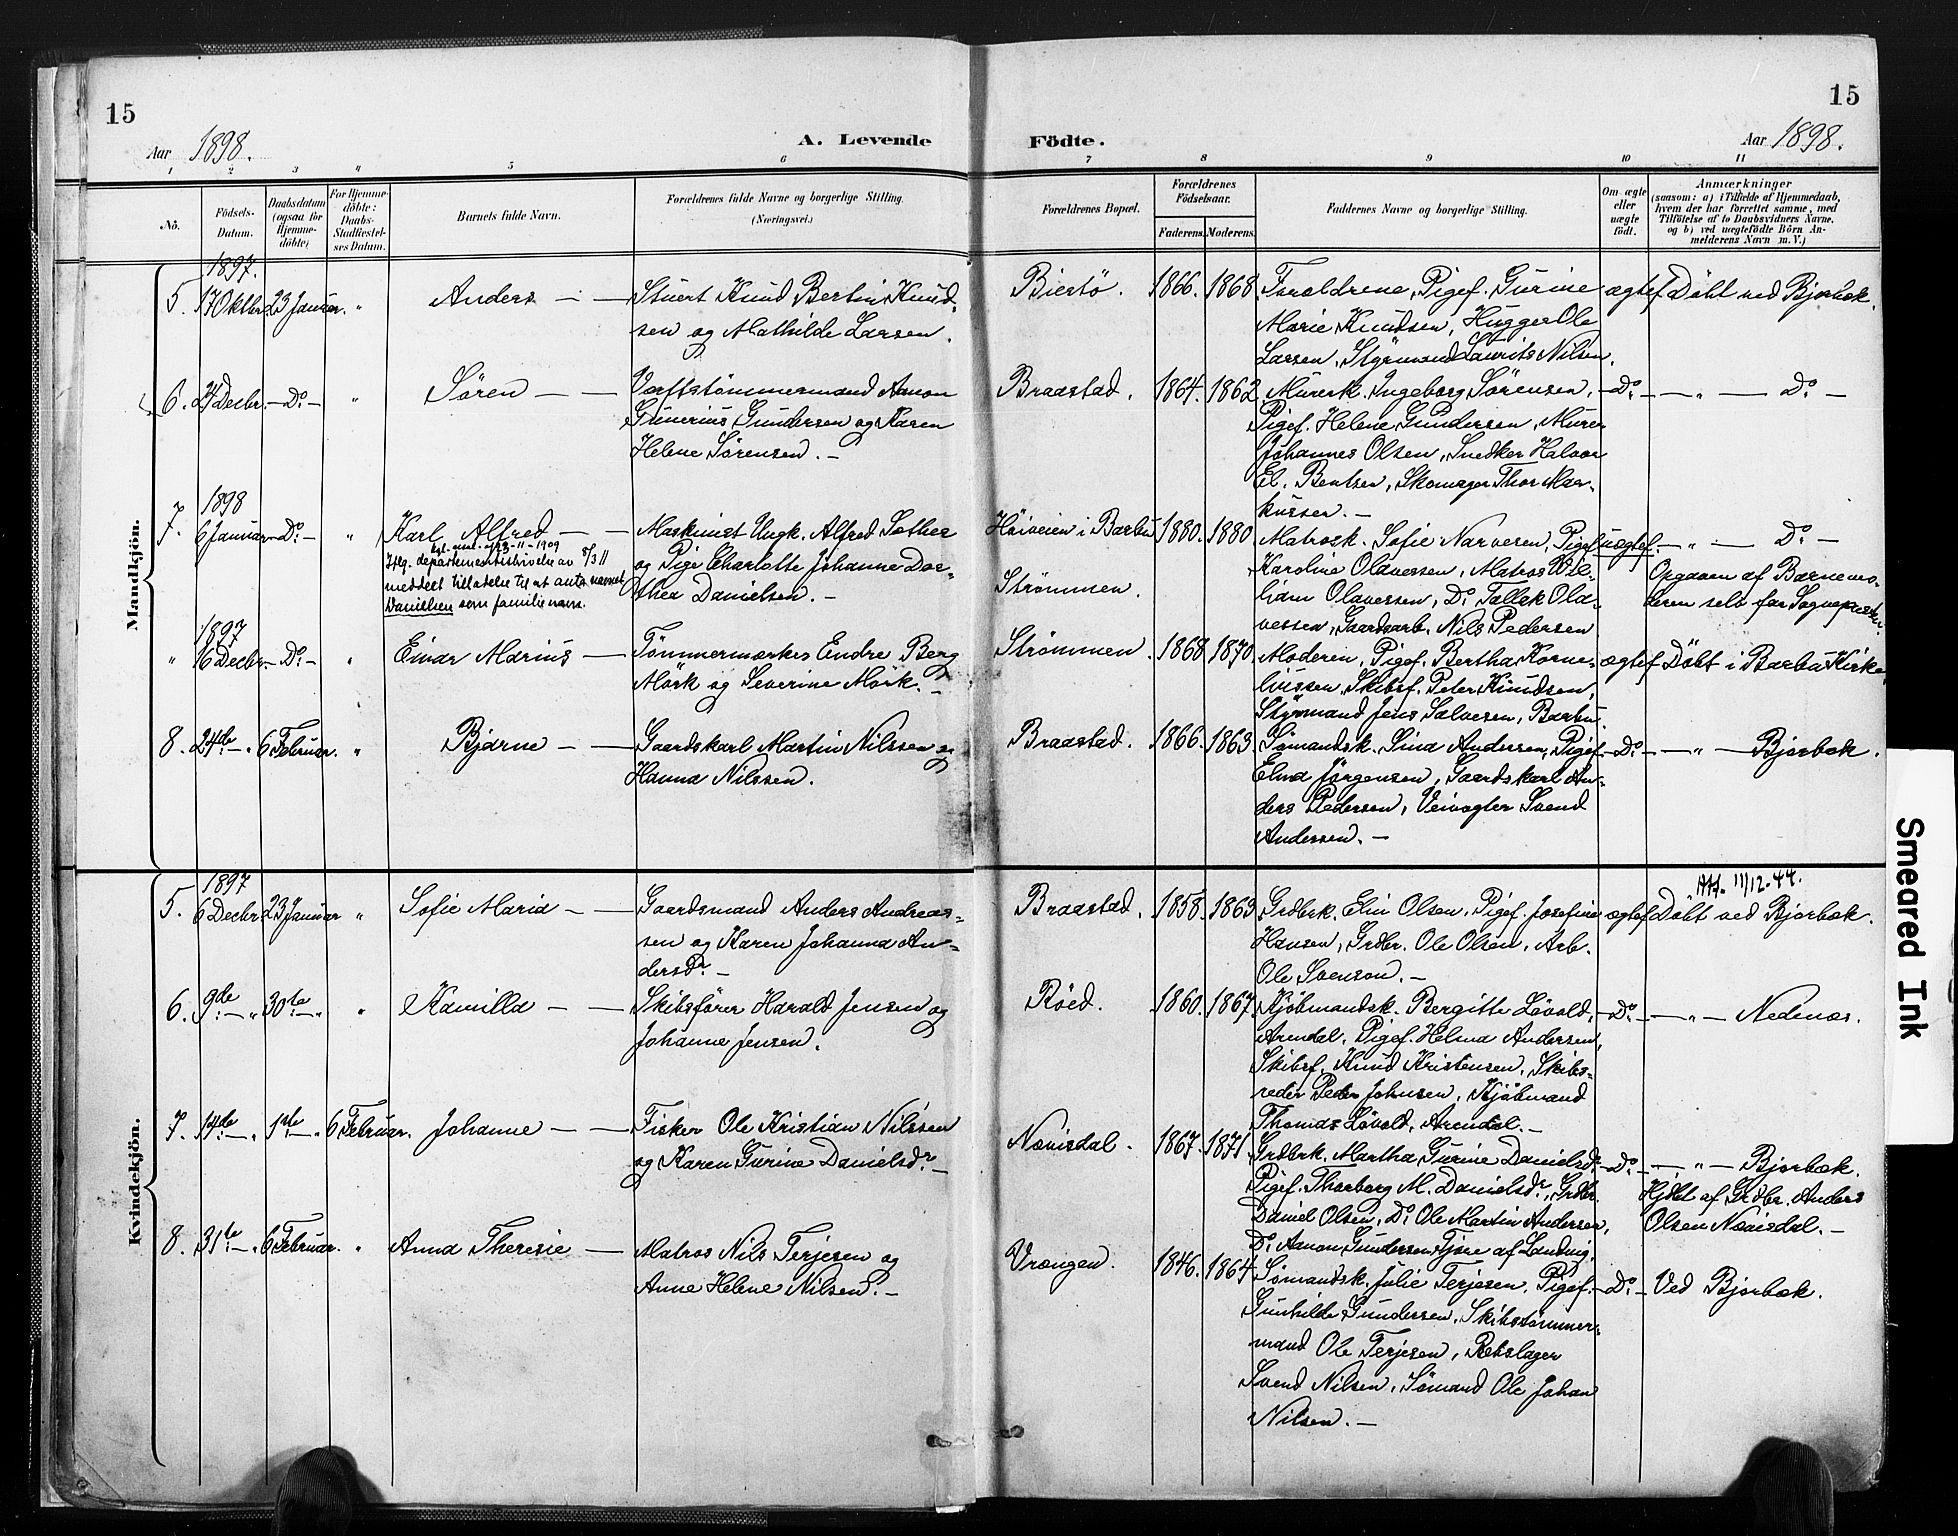 15
15
Aar 1898.
A. Levende
Födte.
Aar 1898.
1 2 3 " 5 6 7 8 9 10 11
No.
Födsels-Datum.
Daabsdatum (ogsaa for Hjemme-döbte)
For Hjemme-döbte: Daabs-Stadfæstel-ses Datum.
Barnets fulde Navn.
Forældrenes fulde Navne og borgerlige Stilling. (Næringsvei.)
Forældrenes Bopæl.
Forældrenes Födselsaar.
Faderens.
Moderens.
Faddernes Navne og borgerlige Stilling.
Om ægte eller uægte födt.
Anmærkninger
(saasom: a) i Tilfælde af Hjemmedaab,
hvem der har forrettet samme, med
Tilföielse af to Daabsvidners Navne.
og b) ved uægtefödte Börn An-
melderens Navn m. V.)
Mandkjön.
1897.
5. 17 Oktbr. 23 Januar. " Anders — —
Stuert Knud Bertin Knud-
sen og Mathilde Larsen.
Biestö. 1866. 1868.
Forældrene, Pigef. Gurine
Marie Knudsen, Hugger Ole
Larsen, Styrmand Laurits Nilsen.
ægtef. Döbt ved Bjorbæk.
6. 24 Decbr. — Do — " Sören — —
Værftstömmermand Aanon
Gunerius Gundersen og Karen
Helene Sörensen. —
Braastad. 1864. 1862
Murersk. Ingeborg Sörensen,
Pigef. Helene Gundersen, Murer
Johannes Olsen, Snedker Halvor
El. Bentzen, Skomager Thor Mar-
kussen. —
— Do — " — Do —
1898
7. 6 Januar — Do — " Karl Alfred — —
kgl. res. af 23-11-1909
Iflg. departementsskrivelse av 8/3 11
meddelt tilladelse til at anta navnet
Danielsen som familienavn.
Maskinist Ungk. Alfred Sother
og Pige Charlotte Johanne Dor-
thea Danielsen. —
Höiveien i Barbu
Strömmen.
1880. 1880.
Matrosk. Sofie Narvesen, Pigef.
Karoline Olavessen, Matros Wil-
liam Olavessen, Do Tallak Ola-
vessen, Gaardsarb. Nils Pedersen
uægtef. — " — Do —
Opgaven af Barnemo-
deren selv for Sognepresten.
1897
" 16 Decbr. — Do — " Einar Marius —
Tömmermærker Endre Berg
Mörk og Severine Mörk. —
Strömmen. 1868 1870
Moderen, Pigef. Bertha Korne-
liussen, Skibsf. Peter Knudsen,
Styrmand Jens Salvesen, Barbu.
ægtef. Döbt i Barbu Kirke.
8. 24de — " 6 Februar. " Bjarne — —
Gaardskarl Martin Nilssen og
Hanna Nilssen.
Braastad. 1866. 1863
Sömandsk. Sina Andersen, Pigef.
Elina Jörgensen, Gaardskarl An-
ders Pedersen, Veivogter Svend
Andersen. —
— Do — " — Bjorbæk.
Kvindekjön.
1897
5. 6 Decbr. 23 Januar " Sofie Maria — —
Gaardsmand Anders Andreas-
sen og Karen Johanna An-
dersdr. —
Braastad. 1858. 1863
Grdbrk. Elin Olsen, Pigef. Josefine
Hansen, Grdbr. Ole Olsen, Arb.
Ole Svenson. —
Att. 11/12-44.
ægtef. Döbt ved Bjorbæk.
6. 9de — " 30te — " " Kamilla — —
Skibsförer Harald Jensen og
Johanne Jensen.
Röed. 1860. 1867.
Kjöbmandsk. Bergitte Lövold,
Arendal, Pigef. Helma Andersen,
Skibsf. Knud Kristensen, Skibs-
reder Peder Johnsen, Kjöbmand
Thomas Lövold, Arendal. —
— Do — " — Nedenæs.
7. 14de — " 1ste — " 6 Februar. Johanne — —
Fisker Ole Kristian Nilssen
og Karen Gurine Danielsdr. —
Nævisdal. 1867. 1871.
Grdbrk. Martha Gurine Danielsdr.
Pigef. Thorborg M. Danielsdr., Grdbr.
Daniel Olsen, Do Ole Martin Andersen,
Do Aanon Gundersen Tjöre af Landvig.
— Do — " — Bjorbæk.
Hjdbt af Grdbr. Anders
Olsen Nævisdal. —
8. 31te — " 6 Februar. " Anna Theresie —
Matros Nils Terjesen og
Anne Helene Nilsen. —
Vrængen. 1846. 1864
Sömandsk. Julie Terjesen, Pigef.
Gunhilde Gundersen, Skibstömmer-
mand Ole Terjesen, Rebslager
Svend Nilsen, Sömand Ole Johan
Nilsen. —
— Do — Ved Bjorbæk.
Smeared Ink